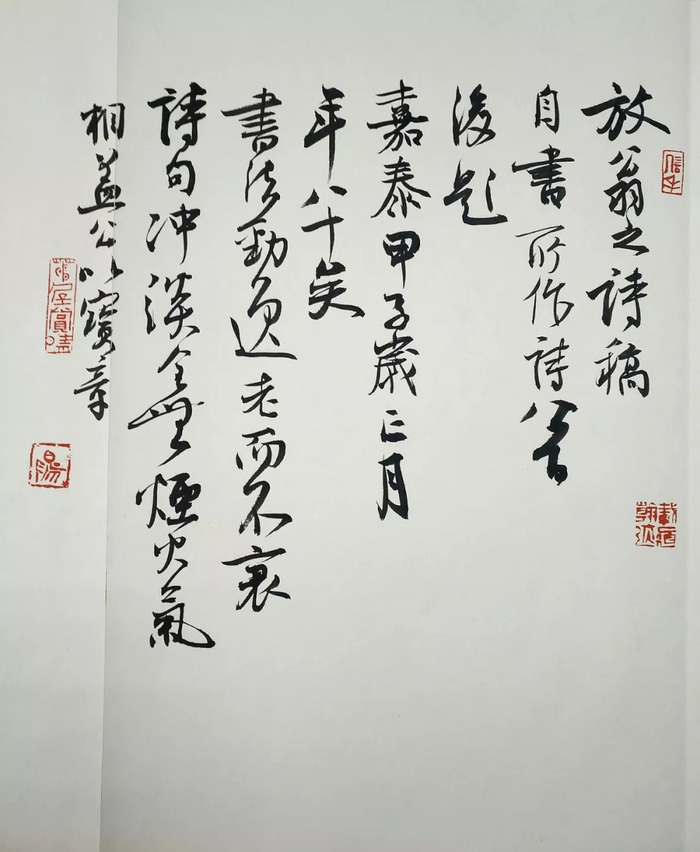 放翁之詩稿
自書所作詩八首
後題
嘉泰甲子歲正月
年八十矣
書法勁逸老而不衰
詩句沖淡全無煙火氣
相蓋公以寶章